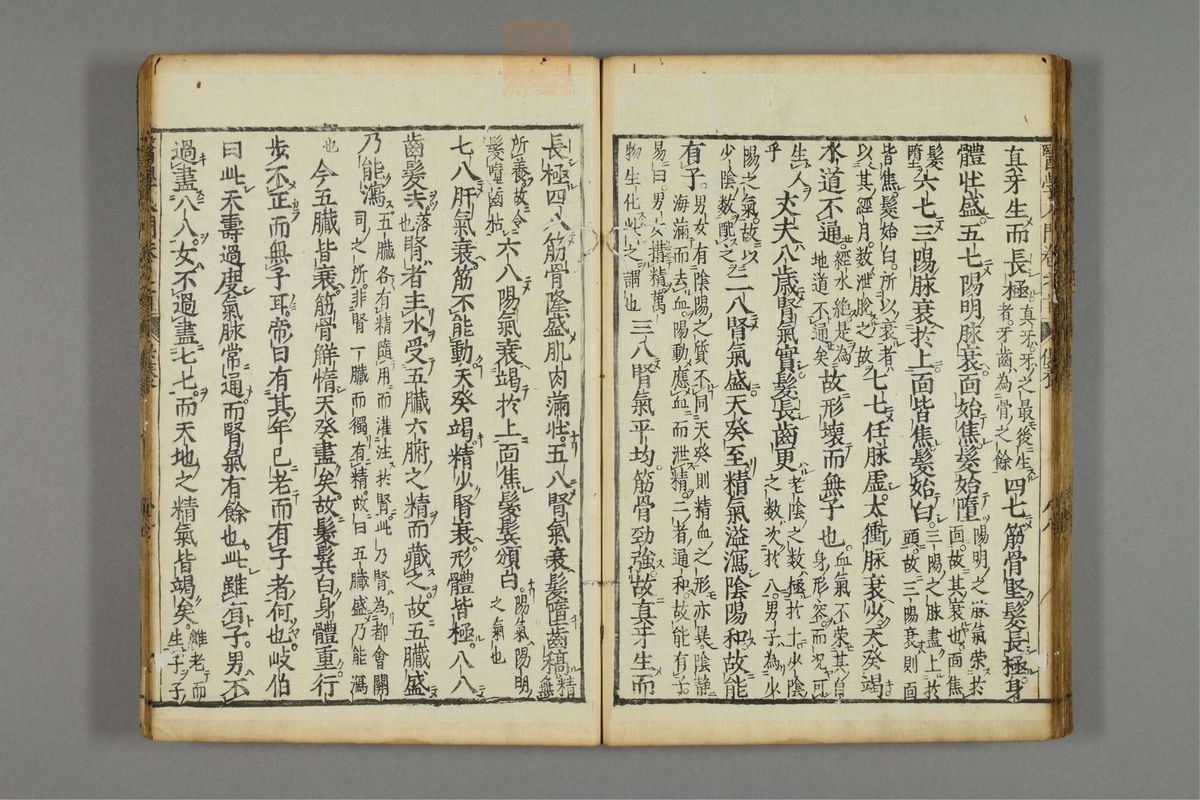 真牙生而長極真牙牙之最後生者牙齒為骨之餘四七筋骨堅髮長極身
體壯盛五七陽明脉衰面始焦髮始墮陽明之脉氣榮於面故其衰也面焦
髮墮六七三陽脉衰於上面皆焦髮始白三陽之脉盡上於頭故三陽衰則面
皆焦髮始白所以衰者以其經月數泄脫之故七七任脉虛太衝脉衰少天癸竭
水道不通經水絕是為地道不通矣故形壞而無子也血氣不榮其身形容而
生人乎丈夫八歲腎氣實髮長齒更老陰之數極於十少陰之數次於八男子為少
陽之氣故以少陰數配之二八腎氣盛天癸至精氣溢瀉陰陽和故能
有子男女有陰陽之質不同天癸則精血之形亦異陰靜海滿而去血陽動應血而泄精二者通和故能有子
易曰男女搆精萬物生化此之謂也三八腎氣平均筋骨勁強故真牙生而
長極四八筋骨隆盛肌肉滿壯五八腎氣衰髮墮齒稿精無
所養故令髮墮齒枯六八陽氣衰竭於上面焦髮鬢頒白陽氣陽明之氣也
七八肝氣衰筋不能動天癸竭精少腎衰形體皆極八八
齒髮去落也腎者主水受五臟六腑之精而藏之故五臟盛
乃能瀉五臟各有精隨用而灌注於腎此乃腎為都會關司之所非腎一臟而獨有精故曰五臟盛乃能瀉
也今五臟皆衰筋骨觧惰天癸盡矣故髮鬢白身體重行
步不正而無子耳帝曰有其年已老而有子者何也岐伯
曰此天壽過度氣脉常通而腎氣有餘也此雖有子男不
過盡八八女不過盡七七而天地之精氣皆竭矣雖老而生子子